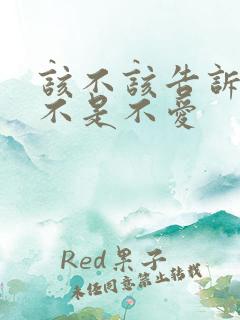 該不該告訴
不是不愛
Red果子
未经同意禁止转载